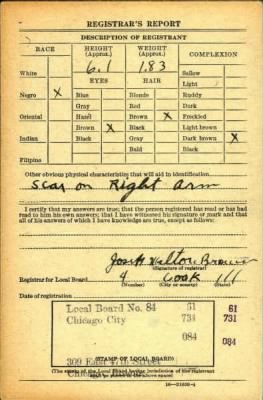 REGISTRAR'S REPORT
DESCRIPTION OF REGISTRANT
RACE HEIGHT (Approx.) WEIGHT (Approx.) COMPLEXION
White 6.1 183 Sallow
EYES HAIR Light
Negro X Blue Blonde Ruddy
Gray Red Dark
Oriental Hazel Brown X Freckled
Brown X Black Light brown
Indian Black Gray Dark brown X
Bald Black
Filipino
Other obvious physical characteristics that will aid in identification
Scar on Right Arm
I certify that my answers are true; that the person registered has read or has had
read to him his own answers; that I have witnessed his signature or mark and that
all of his answers of which I have knowledge are true, except as follows:
Brown
(Signature of registrar)
Registrar for Local Board 4 Cook Ill
(Number) (City or county) (State)
Date of registration
Local Board No. 84 61 61
Chicago City 734 731
084 084
309 East 47th Street
(STAMP OF LOCAL BOARD)
(The stamp of the Local Board having jurisdiction of the registrant
shall be placed in the above space.)